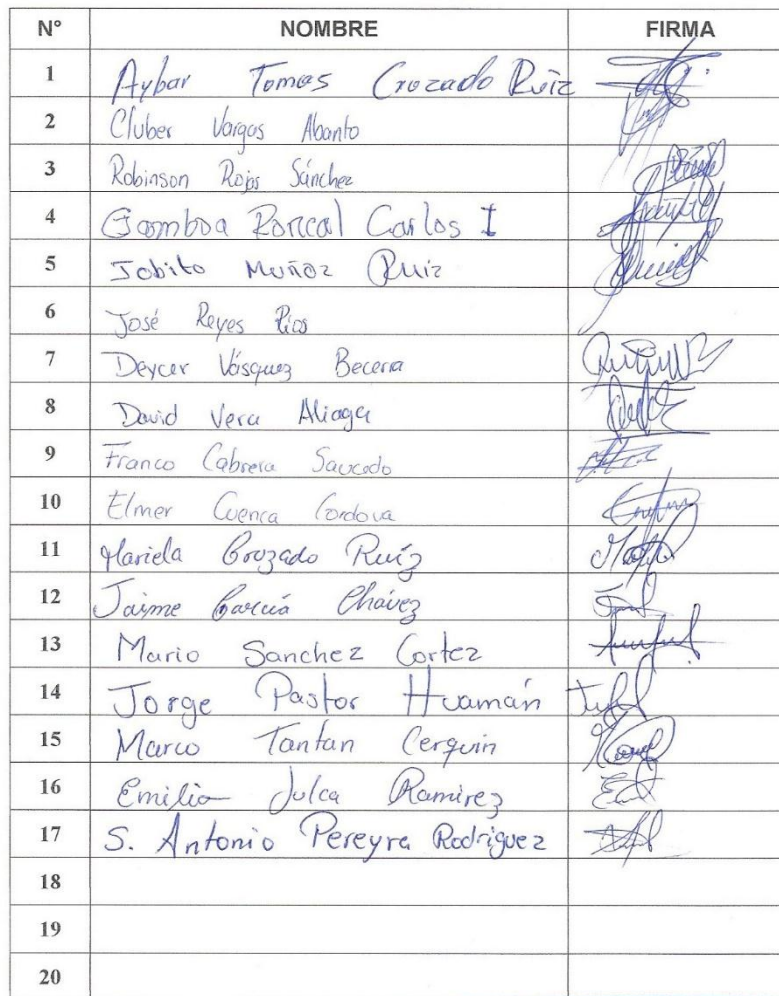 N° NOMBRE FIRMA
1 Aybar Tomas Cruzado Ruiz
2 Cluber Vargas Abanto
3 Robinson Rojas Sánchez
4 Gamboa Roncal Carlos I
5 Jobito Muñoz Ruiz
6 José Reyes Rios
7 Deycer Vásquez Becerra
8 David Vera Aliaga
9 Franco Cabrera Saucedo
10 Elmer Cuenca Cordova
11 Mariela Cruzado Ruíz
12 Jaime García Chávez
13 Mario Sanchez Cortez
14 Jorge Pastor Huamán
15 Marco Tantan Cerquin
16 Emilio Julca Ramirez
17 S. Antonio Pereyra Rodriguez
18
19
20